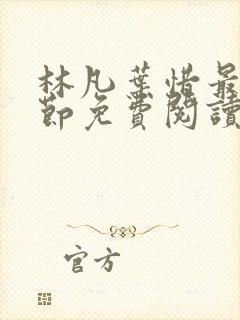 林凡葉惜最
節免費閱讀
官方